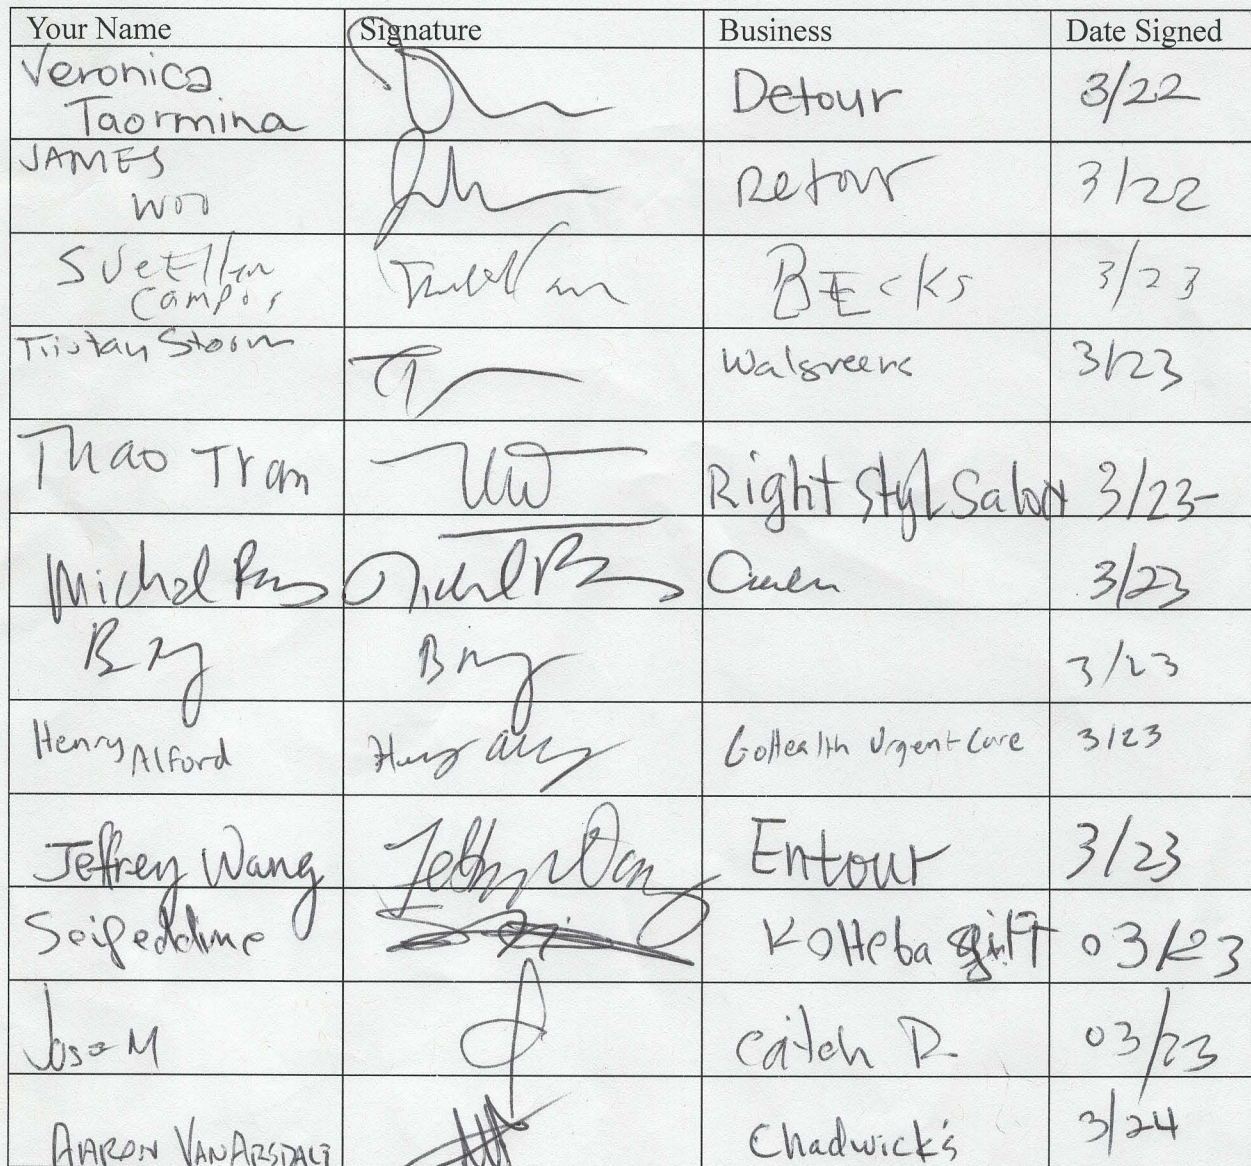 Your Name Signature Business Date Signed
Veronica
Taormina Detour 3/22
JAMES
WOO Retour 3/22
SueEllen
Campos BECKS 3/23
Tristan Storm Walgreens 3/23
Thao Tran Right Styl Salon 3/23
Michal 3/23
3/23
Henry Alford GoHealth Urgent Care 3/23
Jeffrey Wang Entour 3/23
Seifeddine Kolteba gift 03/23
Jose M Catch R 03/23
AARON VANARSDALE Chadwick's 3/24